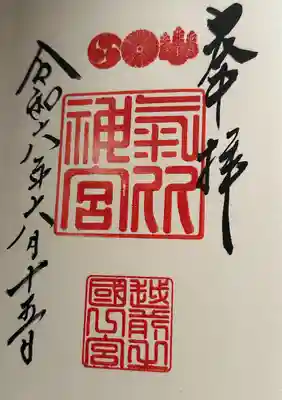 奉拝
氣比
神宮
越前之
國一宮
令和六年六月十五日